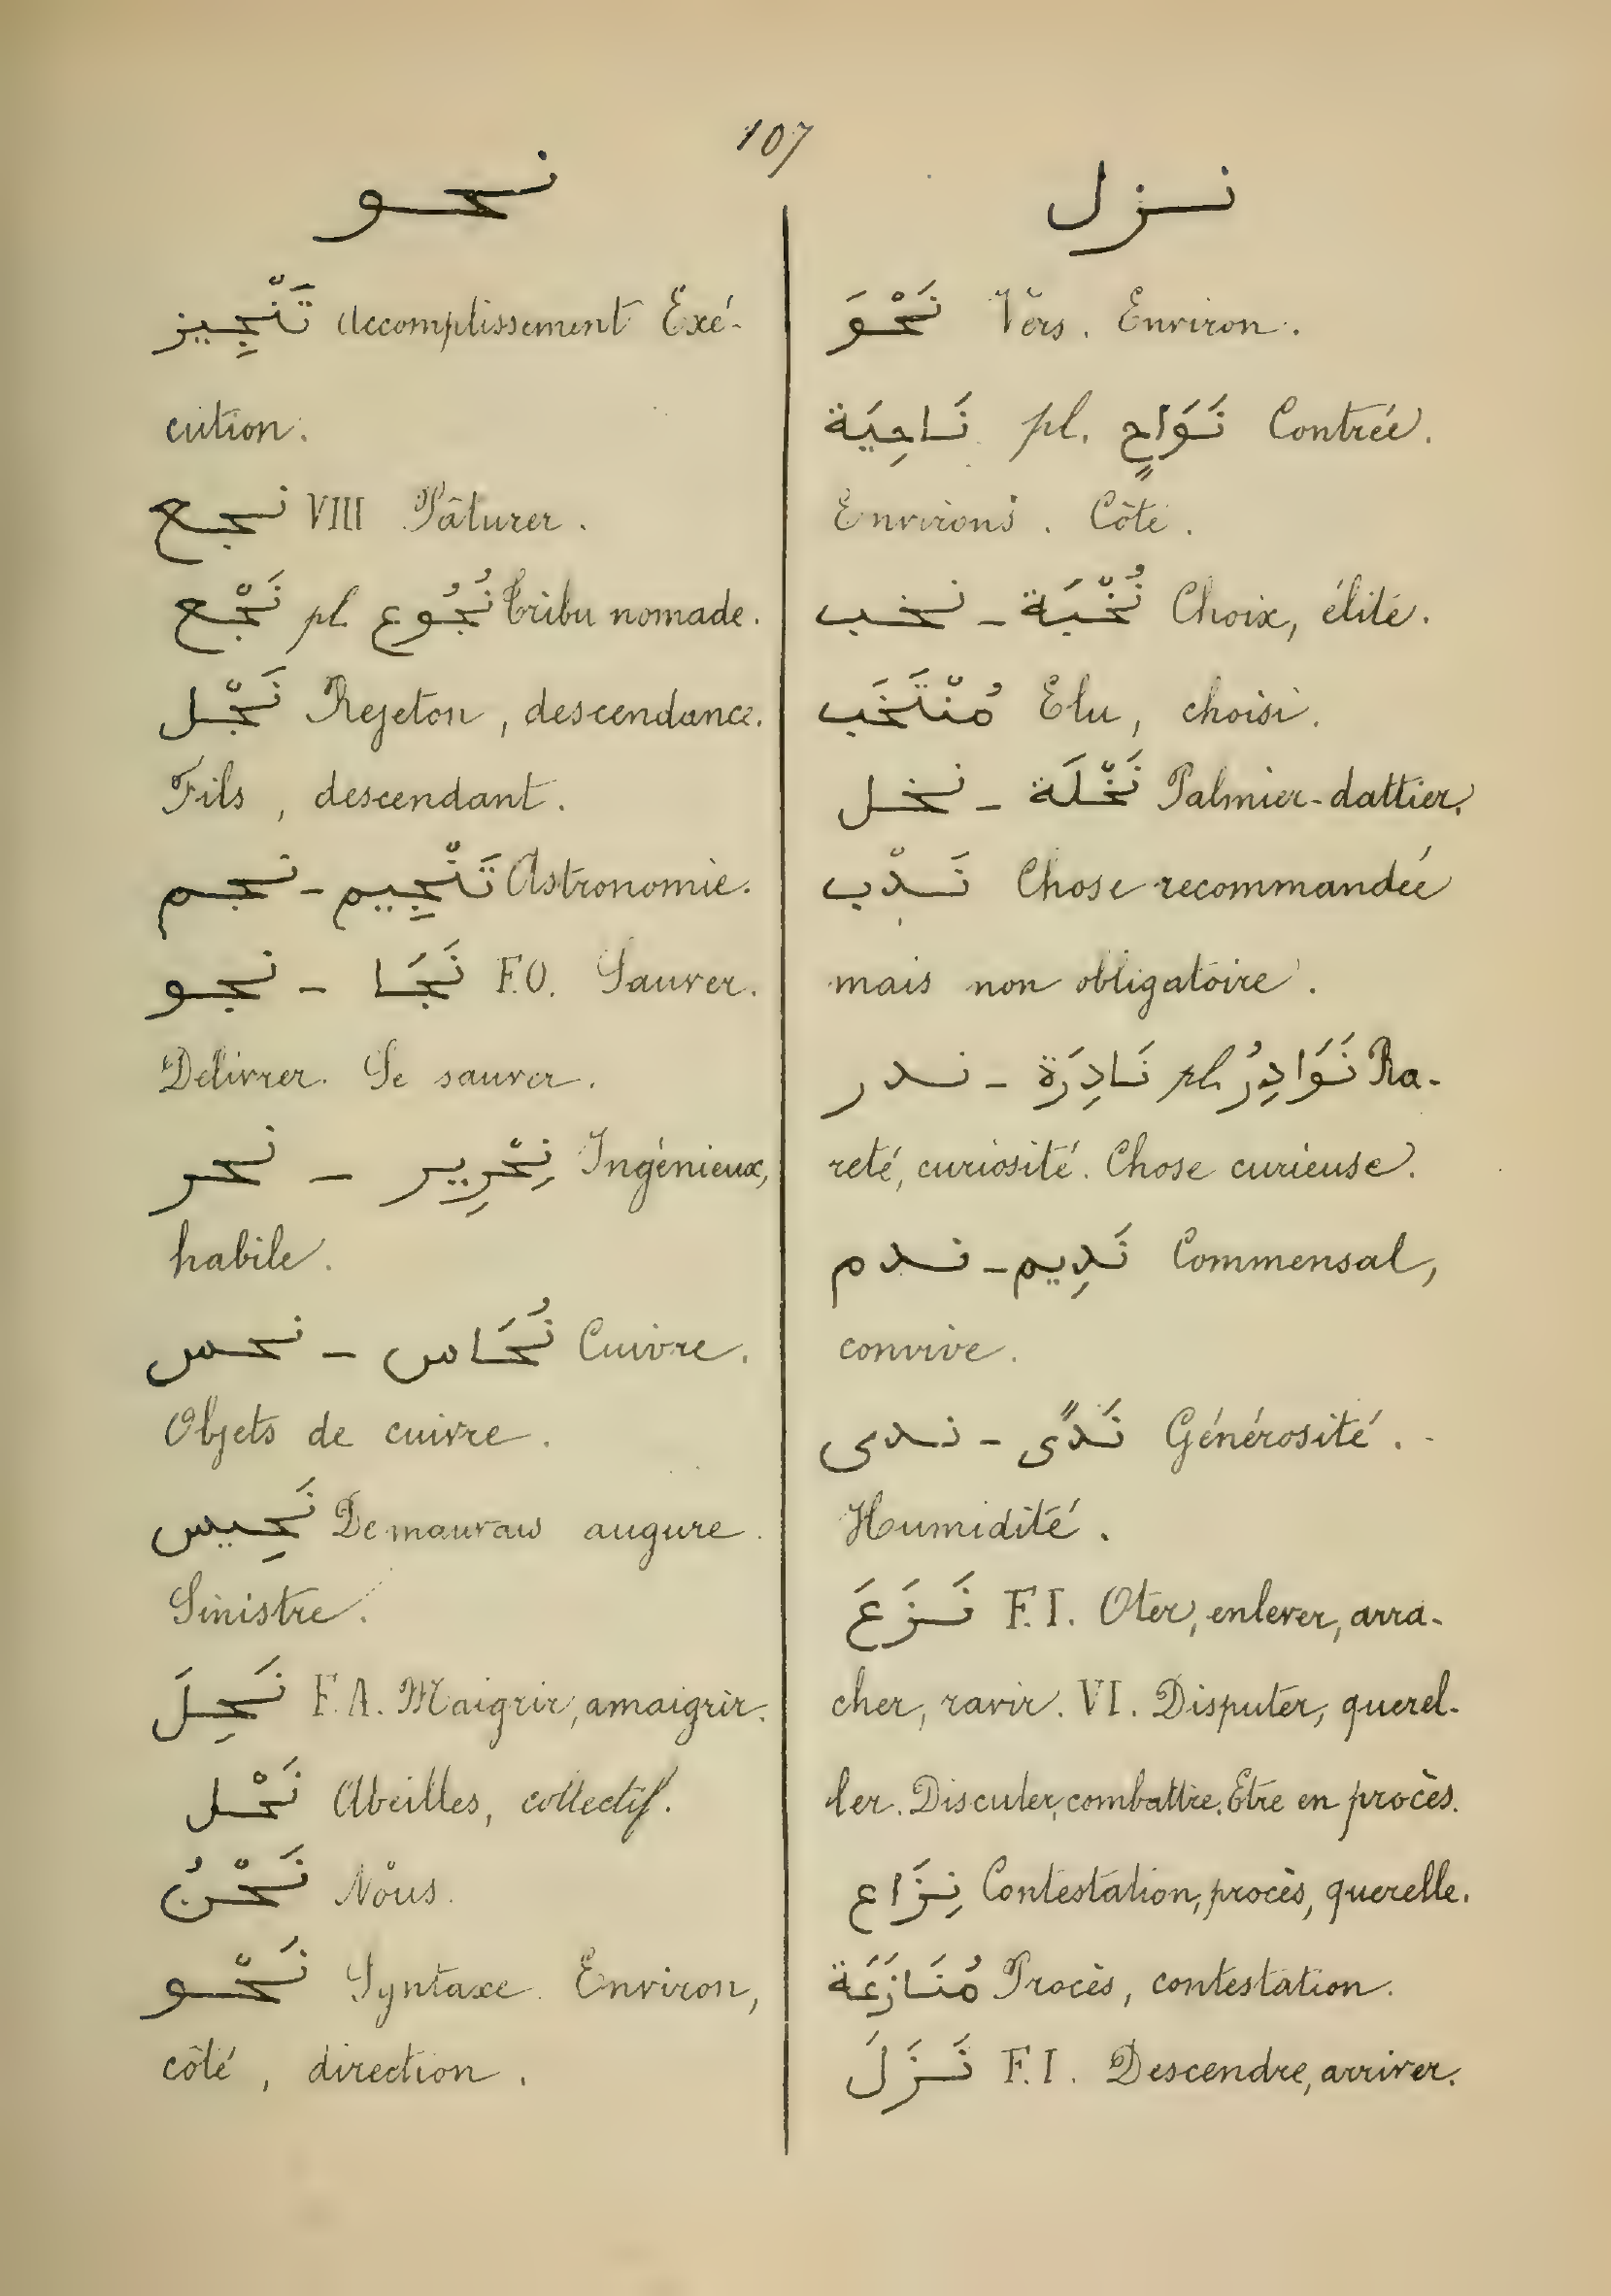 107
نحو
تَنْجِيز Accomplissement Exé-
cution.
نجع VIII Pâturer.
نَجْع pl. نُجُوع Tribu nomade.
نَجْل Rejeton, descendance.
Fils, descendant.
نجم - تَنْجِيم Astronomie.
نجو - نَجَا F.O. Sauver.
Délivrer. Se sauver.
نحر - نِحْرِير Ingénieux,
habile.
نحس - نُحَاس Cuivre.
Objets de cuivre.
نَحِيس De mauvais augure.
Sinistre.
نَحِلَ F.A. Maigrir, amaigrir.
نَحْل Abeilles, collectif.
نَحْنُ Nous.
نَحْو Syntaxe. Environ,
côté, direction.
نزل
نَحْوَ Vers. Environ.
نَاحِيَة pl. نَوَاحٍ Contrée.
Environs. Côté.
نخب - نُخْبَة Choix, élite.
مُنْتَخَب Elu, choisi.
نخل - نَخْلَة Palmier-dattier.
نَدْب Chose recommandée
mais non obligatoire.
ندر - نَادِرَة pl. نَوَادِرُ Ra-
reté, curiosité. Chose curieuse.
ندم - نَدِيم Commensal,
convive.
ندى - نَدًى Générosité.
Humidité.
نَزَعَ F.I. Oter, enlever, arra-
cher, ravir. VI. Disputer, querel-
ler. Discuter, combattre. Etre en procès.
نِزَاع Contestation, procès, querelle.
مُنَازَعَة Procès, contestation.
نَزَلَ F.I. Descendre, arriver.